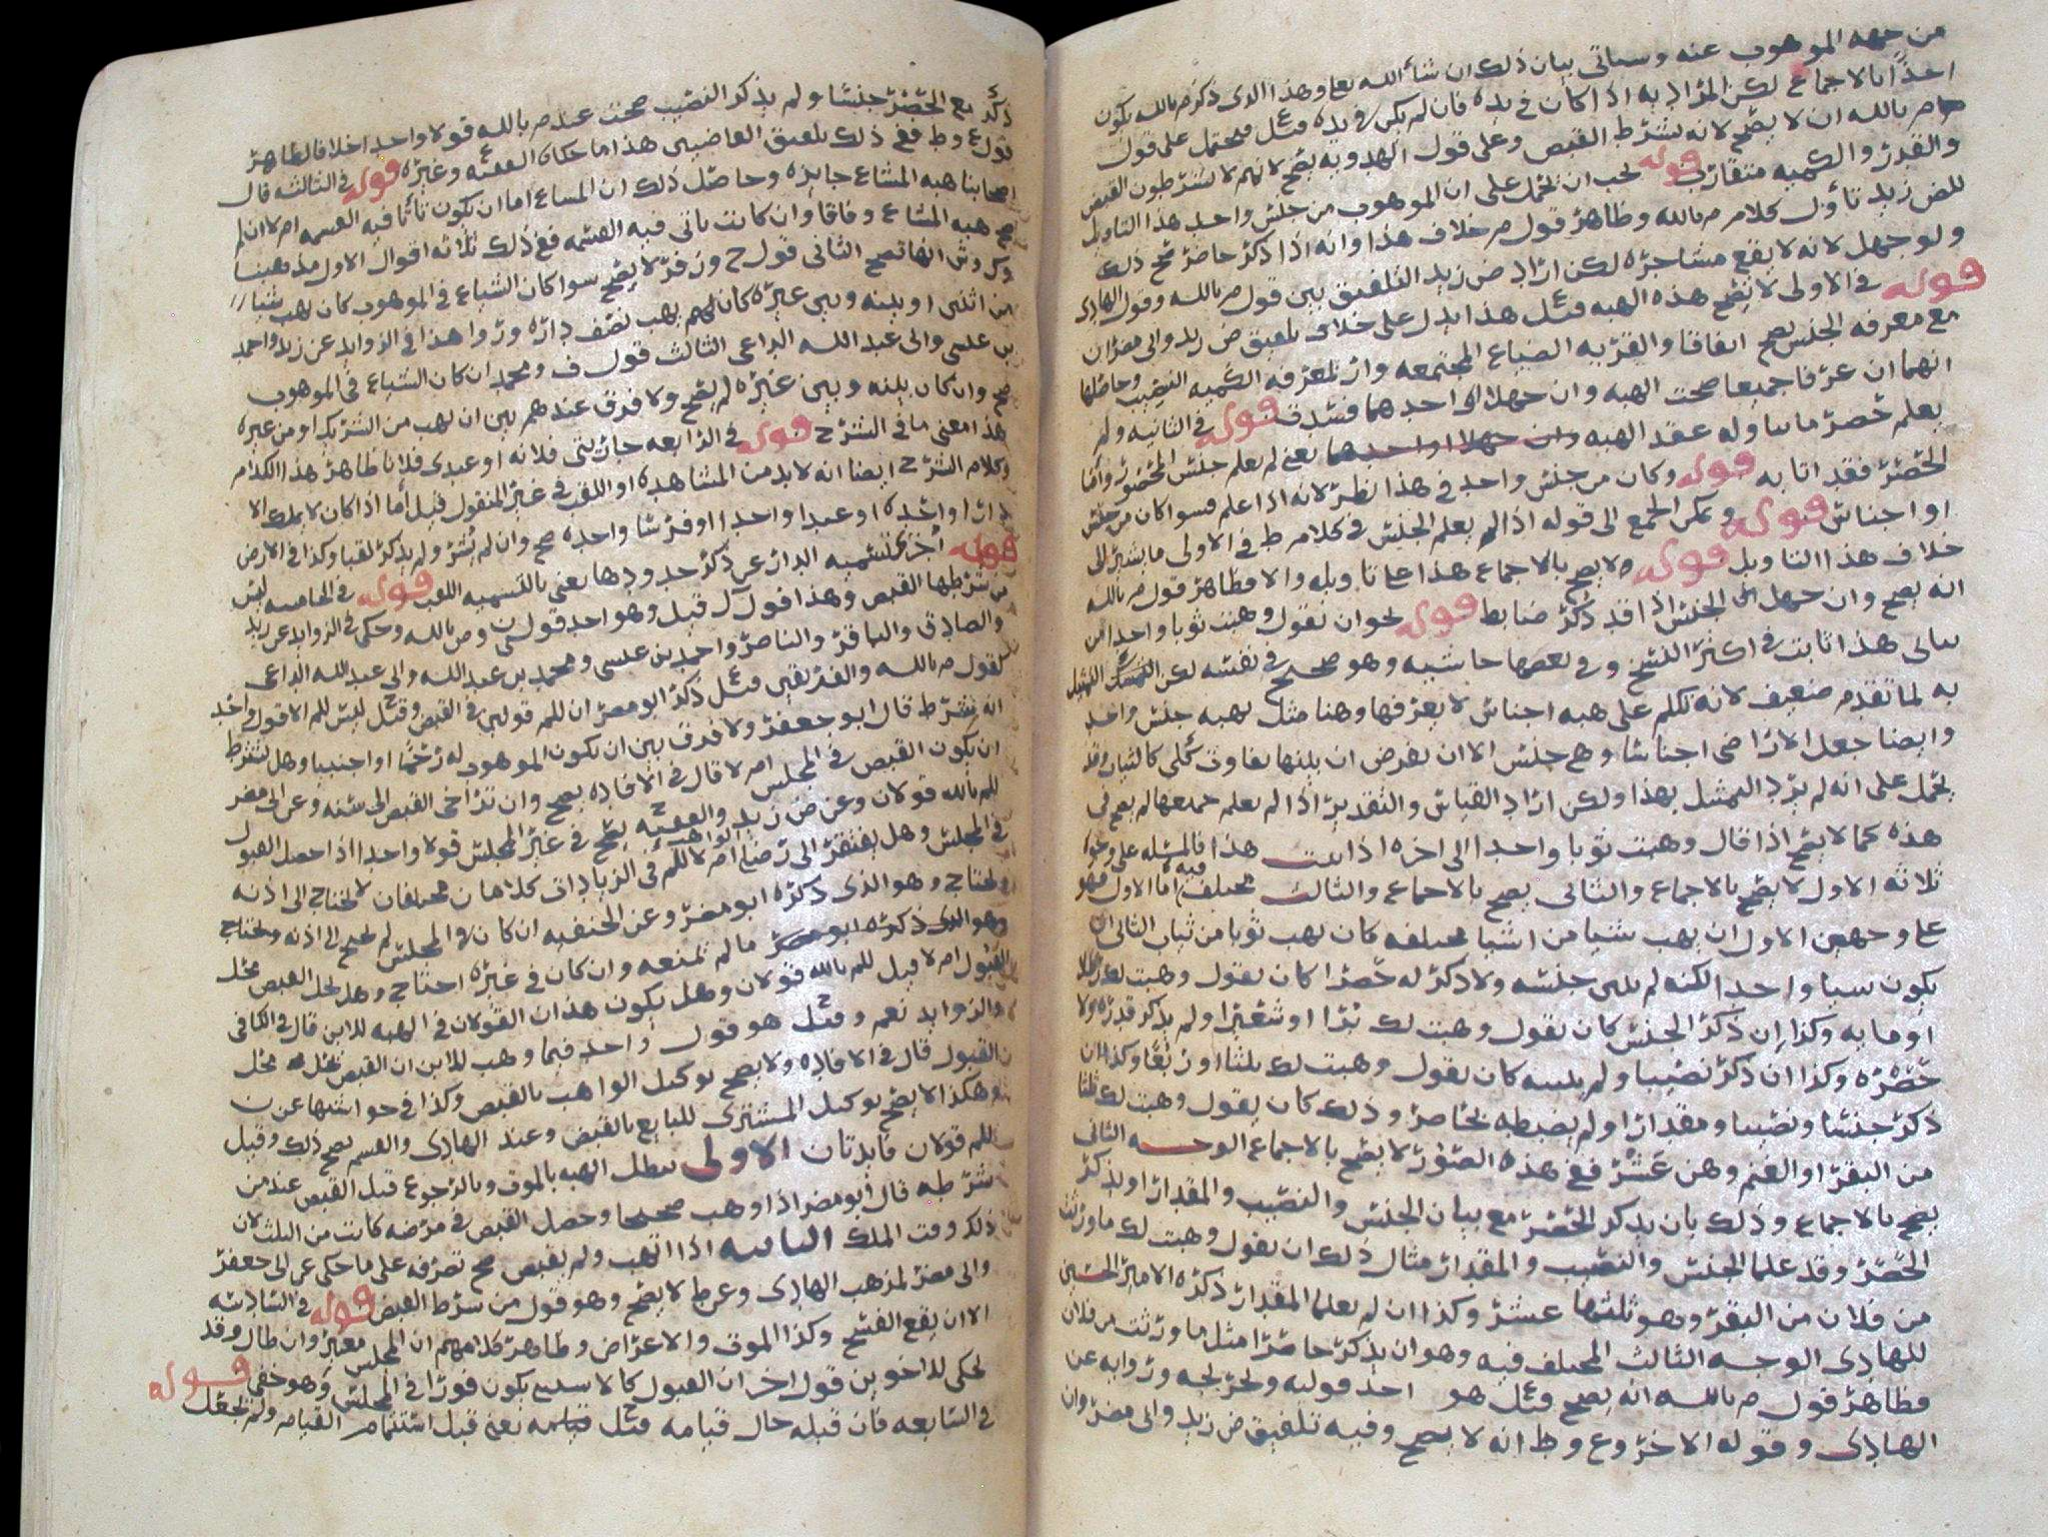 من جهه الموهوب عنه وسياتي بيان ذلك ان شا الله تعا وهذا الدى ذكره م بالله يكون
احدا بالاجماع لكن المراد به اذا كان في يده فان لم يكن في يده فيحتمل على قول
م بالله ان لا يصح لانه يشرط القبض وعلى قول الهدويه يصح لانهم لا يشرطون القبض
والقدر والكميه متقارب قوله يحب ان يحمل على ان الموهوب من جنس واحد هذا التاويل
للض زيد تاول كلام م بالله وظاهر قول م خلاف هذا وانه اذا ذكر حاضر صح ذلك
ولو جهل لانه لا يقع مشاجره لكن اراد ض زيد التلفيق بين قول م بالله وقول الهادى
قوله في الاولى لا يصح هذه الهبه هذا يدل على خلاف تلفيق ض زيد وابى مضر ان
مع معرفه الجنس يصح اتفاقا والقريه الضياع المجتمعه وان لمعرفه الكميه النصيب وحاصلها
انهما ان عرفا جميعا صحت الهبه وان جهلا او احدهما فسدت قوله في الثانيه ولم
يعلم حصر ما تناوله عقد الهبه وان جهلا او احدهما يعنى لم يعلم جنس المحصور واما
الحصر فقد اتا به قوله وكان من جنس واحد في هذا نظر لانه اذا علم فسوا كان من جنس
او اجناس قوله ويمكن الجمع الى قوله اذا لم يعلم الجنس في كلام ط في الاولى ما يشير الى
خلاف هذا التاويل قوله ولا يصح بالاجماع هذا على تاويله والا فظاهر قول م بالله
انه يصح وان جهل الجنس اذا قد ذكر ضابط قوله نحو ان تقول وهبت ثوبا واحدا من
ثيابى هذا ثابت في اكثر النسخ وفي بعضها حاشيه وهو صحيح في نفسه لكن التمثيل
به لما تقدم ضعيف لانه تكلم على هبه اجناس لا يعرفها وهنا مثل بهبه جنس واحد
وايضا جعل الاراضى اجناسا وهى جنس الا ان يفرض ان بينها تفاوت كلى كالثياب وقد
يحمل على انه لم يرد التمثيل بهذا ولكن اراد القياس والتقدير اذا لم يعلم جميعها لم يصح في
هذه كما لا يصح اذا قال وهبت ثوبا واحدا الى اخره اذا ثبت هذا فالمسئله على وجوه
ثلاثه الاول لا يصح بالاجماع والثانى يصح بالاجماع والثالث مختلف فيه اما الاول فهو
على وجهين الاول ان يهب شيا من اشيا مختلفه كان يهب ثوبا من ثياب الثانى ان
يكون شيا واحدا لكنه لم يبين جنسه ولا ذكر له حصرا كان يقول وهبت لك رطلا
او مايه وكذا ان ذكر الجنس كان يقول وهبت لك برا او شعيرا ولم يذكر قدره ولا
حصره وكذا ان ذكر نصيبا ولم يبينه كان يقول وهبت لك ثلثا او ربعا وكذا ان
ذكر جنسا ونصيبا ومقدارا ولم يضبطه بحاصر وذلك كان يقول وهبت لك ثلثا
من البقر او الغنم وهن عشر ففى هذه الصور لا يصح بالاجماع الوجه الثانى
يصح بالاجماع وذلك بان يذكر الحصر مع بيان الجنس والنصيب والمقدار او يذكر
الحصر وقد علما الجنس والنصيب والمقدار مثال ذلك ان يقول وهبت لك ما ورثت
من فلان من البقر وهو ثلثها عشر وكذا ان لم يعلما المقدار ذكره الامير الحسين
للهادى الوجه الثالث المختلف فيه وهو ان يذكر حاصرا مثل ما ورثت من فلان
فظاهر قول م بالله انه يصح وقيل هو احد قوليه وتخريجه وروايه عن
الهادى وقوله الاخر وع وط انه لا يصح وفيه تلفيق ض زيد وابى مضر وان
ذكر مع الحصر جنسا ولم يذكر النصيب صحت عند م بالله قولا واحدا خلاف الظاهر
قول ع وط ففى ذلك تلفيق القاضيين هذا ما حكاه الفقيه وغيره قوله في الثالثه قال
اصحابنا هبه المشاع جايزه وحاصل ذلك ان المشاع اما ان يكون تاتا فيه القسمه ام لا ان لم
صح هبه المشاع وفاقا وان كانت تاتى فيه القسمه ففى ذلك ثلاثه اقوال الاول مذهبنا
وك وش انها تصح الثانى قول ح وزفر لا يصح سوا كان الشياع في الموهوب كان يهب شيا
من اثنين او بينه وبين غيره كان لهم يهب نصف داره وروا هذا في الزوايد عن زيد واحمد
بن عيسى وابى عبد الله الداعى الثالث قول ف ومحمد ان كان الشياع في الموهوب
صح وان كان بينه وبين غيره لم يصح ولا فرق عندهم بين ان يهب من الشريك او من غيره
هذا معنى ما في الشرح قوله في الرابعه جاريتى فلانه او عبدى فلانا ظاهر هذا الكلام
وكلام الشرح ايضا انه لا بد من المشاهده او اللقب في غير المنقول قيل اما اذا كان لا يملك الا
دارا واحده او عبدا واحدا او فرسا واحده صح وان لم يشر ولم يذكر لقبا وكذا في الارض
قوله اجزى تسميه الدار عن ذكر حدودها يعنى بالتسميه اللقب قوله في الخامسه ليس
من شرطها القبض وهذا قول ل قيل وهو احد قولى ن وص بالله وحكى في الزوايد عن زيد
والصادق والباقر والناصر واحمد بن عيسى ومحمد بن عبد الله وابى عبد الله الداعى
لقول م بالله والفريقين ذكر ابو مضر ان للم قولين في القبض وقيل ليس للم الا قول واحد
انه شرط قال ابو جعفر ولا فرق بين ان يكون الموهوب له رحما او اجنبيا وهل يشرط
ان يكون القبض في المجلس ام لا قال في الافاده يصح وان تراخى القبض الى سنه وعن ابى مضر
للم بالله قولان وعن ض زيد والفقيه يصح في غير المجلس قولا واحدا اذا حصل القبول
في المجلس وهل يفتقر الى رضا الواهب ام لا للم في الزيادات كلامان مختلفان لا يحتاج الى اذنه
ويحتاج وهو الذى ذكره ابو مضر وعن الحنفيه ان كان في المجلس لم يحتج الى اذنه ويحتاج
وهو الذى ذكره ابو مضر ما لم يمنعه وان كان في غيره احتاج وهل يحل القبض محل
القبول ام لا قيل للم بالله قولان وهل يكون هذان القولان في الهبه للابن قال في الكافى
والزوايد نعم وقيل هو قول واحد فيما وهب للابن ان القبض يحل محل
القبول قال في الافاده ولا يصح توكيل الواهب بالقبض وكذا في حواشيها عن ن
وهكذا لا يصح توكيل المشترى للبايع بالقبض وعند الهادى والقسم يصح ذلك وقيل
للم قولان فايدتان الاولى تبطل الهبه بالموت وبالرجوع قبل القبض عند من
شرطه قال ابو مضر اذا وهب صحيحا وحصل القبض في مرضه كانت من الثلث لان
ذلك وقت الملك الثانيه اذا اتهب ولم يقبض صح تصرفه على ما حكى عن ابى جعفر
وابى مضر لمذهب الهادى وعن ط لا يصح وهو قول من شرط القبض قوله في السادسه
الا ان يقع الفسخ وكذا الموت والاعراض وظاهر كلامهم ان المجلس معتبر وان طال وقد
حكى للداخو بن قول اخر ان القبول كالاستيع يكون فورا في المجلس وهو خفى قوله
في السابعه فان قبله حال قيامه قيل قيامه يعنى قبل استتمام القيام ولم يجعل